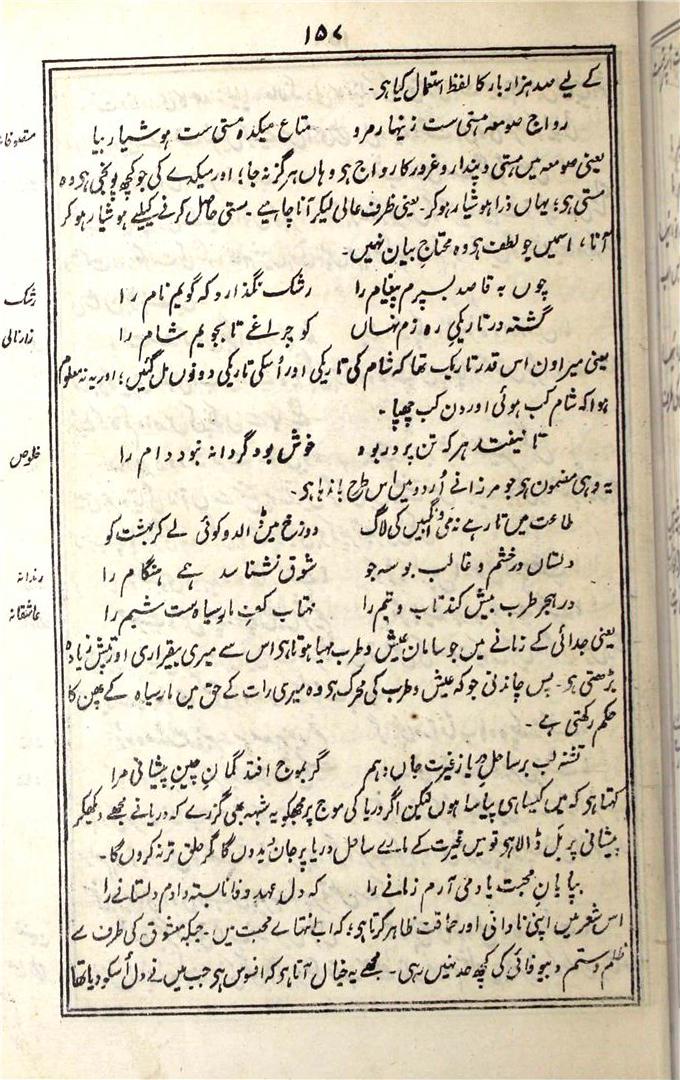 ۱۵۷
کے لیے صد ہزار بار کا لفظ استعمال کیا ہی۔
متصوفانہ
رواج صومعہ ہستی ست زینہار مرو متاعِ میکدہ مستی ست ہوشیار بیا
یعنی صومعہ میں ہستی و پندار و غرور کا رواج ہی وہاں ہرگز نہ جا؛ اور میکدے کی جو کچھ پونجی ہی وہ
مستی ہی؛ یہاں ذرا ہوشیار ہو کر۔ یعنی ظرف عالی لیکر آنا چاہیے۔ مستی حاصل کرنے کیلیے ہوشیار ہو کر
آنا، اسمیں جو لطف ہی وہ محتاجِ بیان نہیں۔
رشک
چوں بہ قاصد بسپرم پیغام را رشک نگذارد کہ گویم نام را
زار نالی
گشتہ در تاریکیِ روزم نہاں کو چراغے تا بجویم شام را
یعنی میرا دن اس قدر تاریک تھا کہ شام کی تاریکی اور اُسکی تاریکی دونوں مل گئیں؛ اور یہ نہ معلوم
ہوا کہ شام کب ہوئی اور دن کب چھپا۔
خلوص
تا نیفتد ہر کہ تن پرور بود خوش بود گر دانہ نبود دام را
یہ وہی مضمون ہی جو مرزا نے اُردو میں اس طرح باندھا ہی۔
طاعت میں تا رہے نہ مئ و انگبیں کی لاگ دوزخ میں ڈالدو کوئی لے کر بہشت کو
رندانہ
دلستاں در خشم و غالب بوسہ جو شوق نشناسد ہمے ہنگام را
عاشقانہ
در ہجر طرب بیش کند تاب و تبم را مہتاب کفِ مارِ سیاہ ست شبم را
یعنی جدائی کے زمانے میں جو سامانِ عیش و طرب مہیا ہوتا ہی اس سے میری بیقراری اور تپش زیادہ
بڑھتی ہی۔ بس چاندنی جو کہ عیش و طرب کی محرک ہی وہ میری رات کے حق میں مارِ سیاہ کے پھن کا
حکم رکھتی ہے۔
تشنہ لب بر ساحلِ دریا ز غیرت جاں دہم گر بموج افتد گمانِ چینِ پیشانی مرا
کہتا ہی کہ میں کیسا ہی پیاسا ہوں لیکن اگر دریا کی موج پر مجھکو یہ شبہہ بھی گزرے کہ دریا نے مجھے دیکھکر
پیشانی پر بل ڈالا ہی تو میں غیرت کے مارے ساحلِ دریا پر جان دیدوں گا مگر حلق تر نہ کروں گا۔
بپایانِ محبت یاد می آرم زمانے را کہ دل عہدِ وفا نابستہ دادم دلستانے را
اس شعر میں اپنی نادانی اور حماقت ظاہر کرتا ہی؛ کہ اب انتہائے محبت میں۔ جبکہ معشوق کی طرف سے
ظلم و ستم و بیوفائی کی کچھ حد نہیں رہی۔ مجھے یہ خیال آتا ہی کہ افسوس ہی جب میں نے دل اُسکو دیا تھا